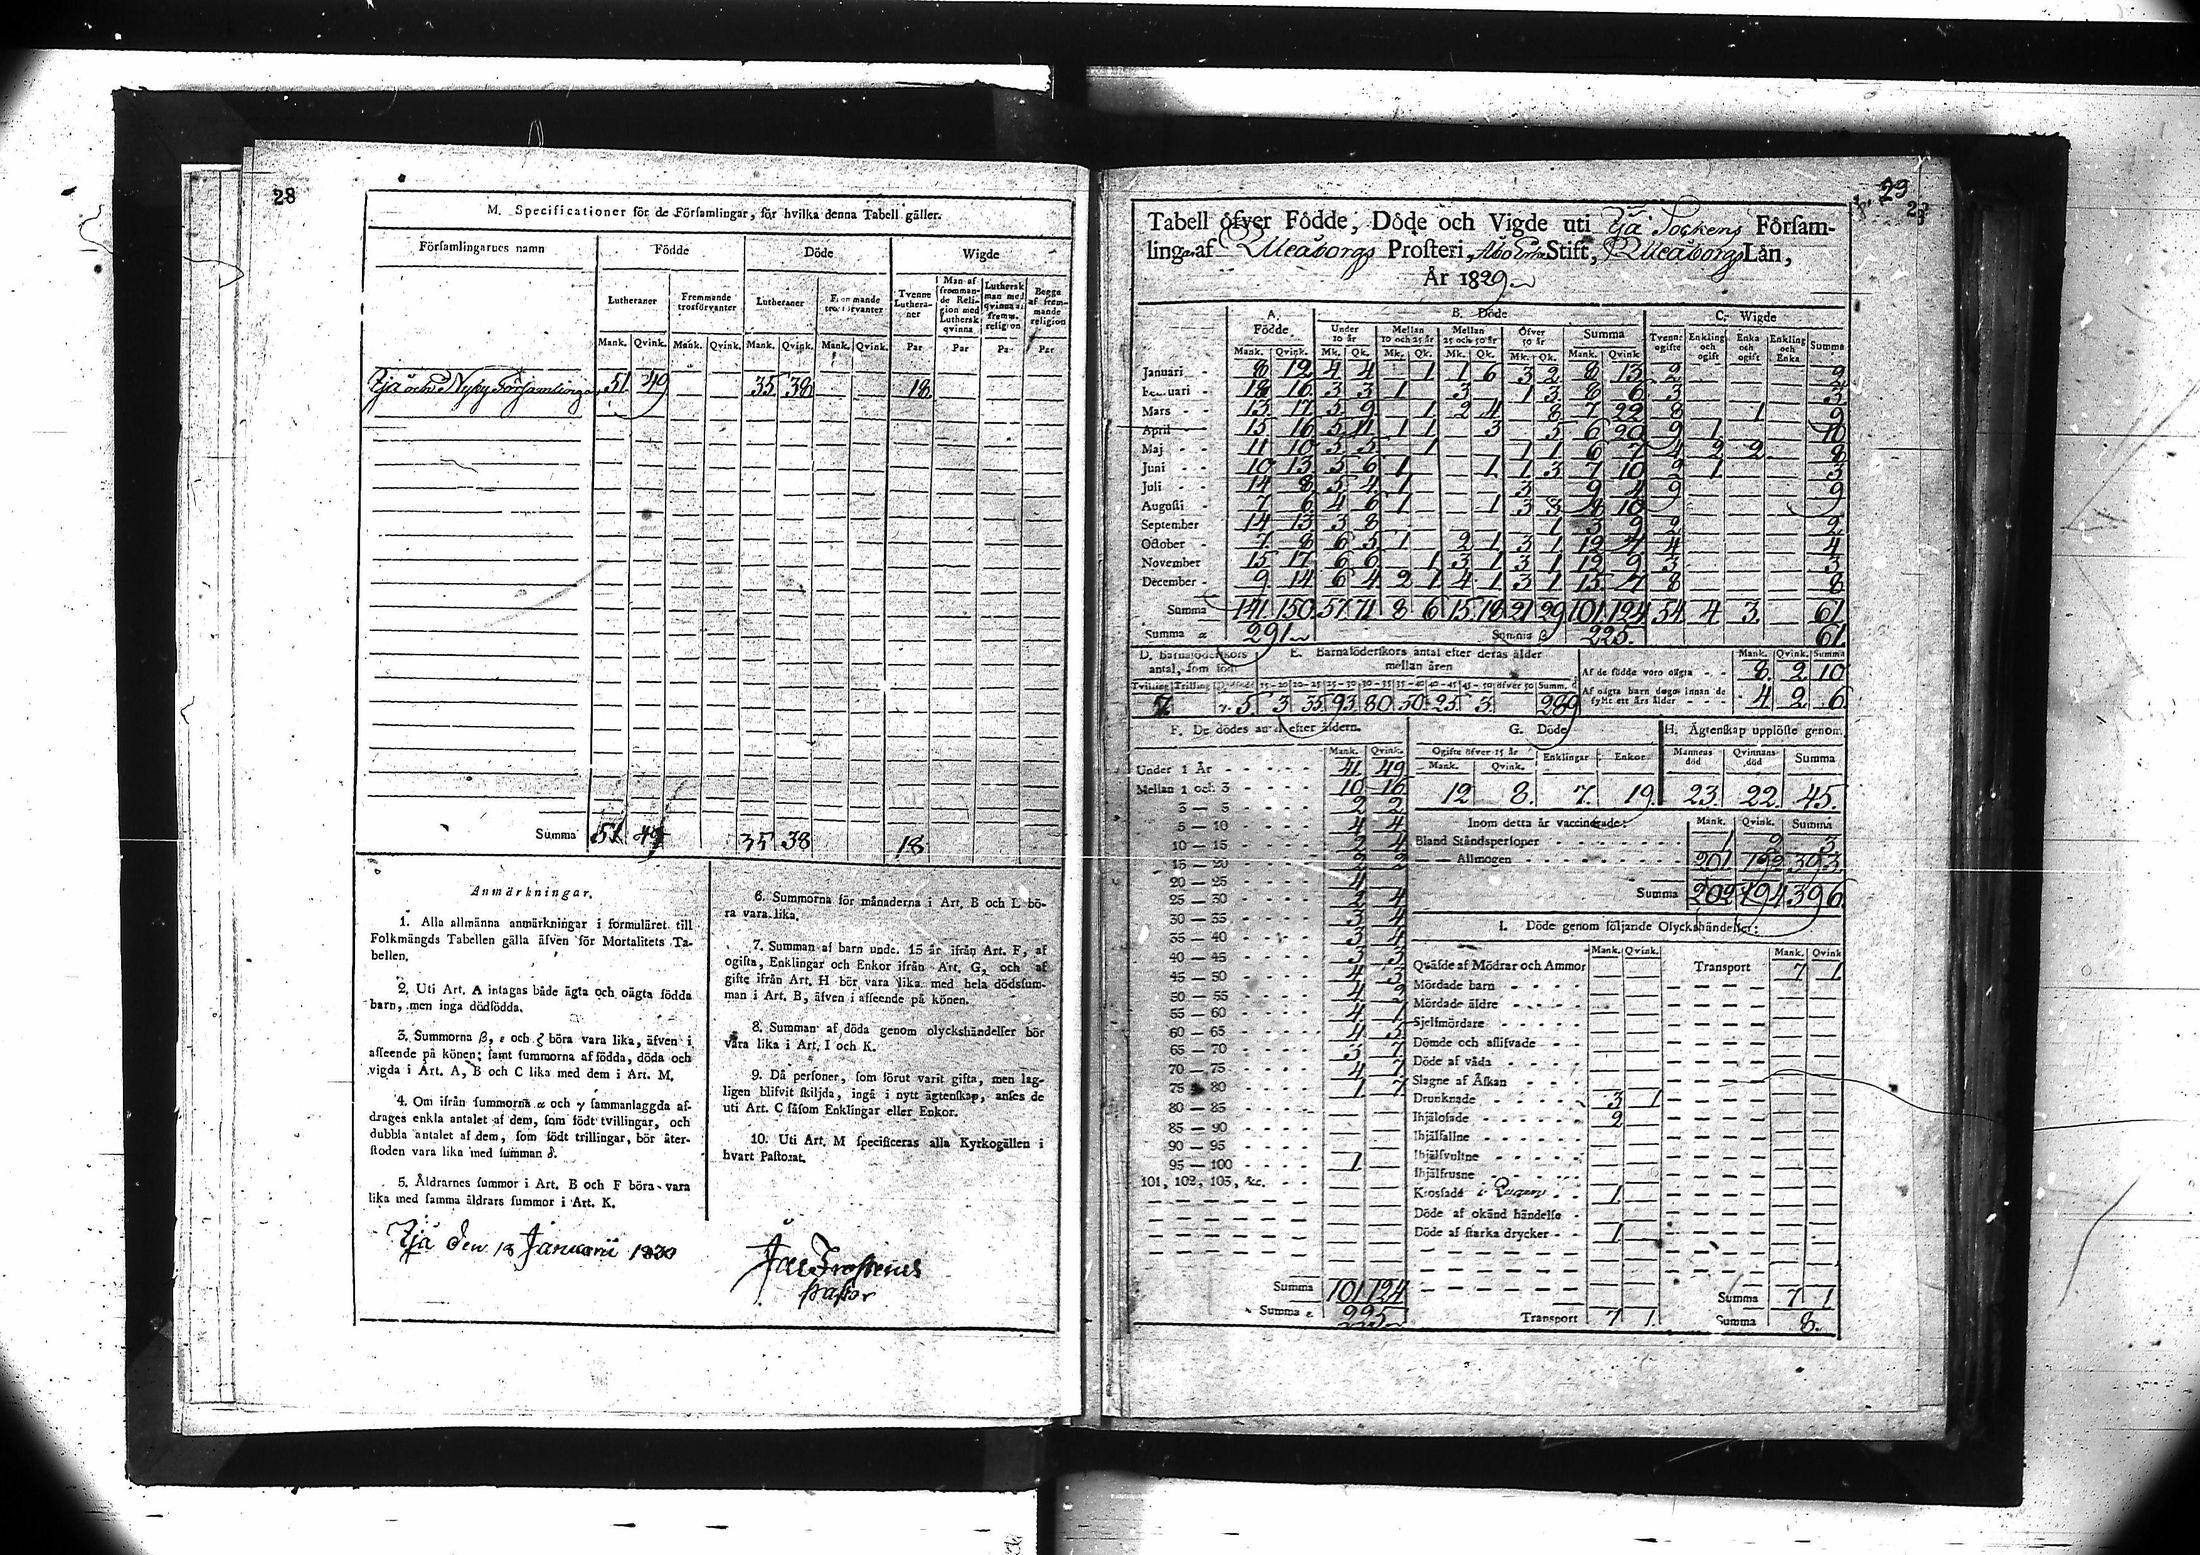 28
M. Specificationer för de Församlingar, för hvilka denna Tabell gäller.
Församlingarnes namn Födde Döde Wigde
Lutheraner Fremmande trosförvanter Lutheraner Fremmande trosförvanter Tvenne Lutheraner Man af fremmande Religion med Luthersk qvinna Luthersk man med qvinna af fremm. religion Begge af fremmande religion
Mank. Qvink. Mank. Qvink. Mank. Qvink. Mank. Qvink. Par Par Par Par
Ijå och Nyby Församlingar 51 49 35 38 18
Summa 51 49 35 38 18
Anmärkningar.
1. Alla allmänna anmärkningar i formuläret till
Folkmängds Tabellen gälla äfven för Mortalitets Ta-
bellen.
2. Uti Art. A intagas både ägta och oägta födda
barn, men inga dödfödda.
3. Summorna β, ε och ζ böra vara lika, äfven i
affeende på könen; samt summorna af födda, döda och
vigda i Art. A, B och C lika med dem i Art. M.
4. Om ifrån summorna α och γ sammanlaggda af-
drages enkla antalet af dem, som födt tvillingar, och
dubbla antalet af dem, som födt trillingar, bör åter-
stoden vara lika med summan δ.
5. Åldrarnes summor i Art. B och F böra vara
lika med samma åldrars summor i Art. K.
6. Summorna för månaderna i Art. B och L bö-
ra vara lika.
7. Summan af barn unde. 15 år ifrån Art. F, af
ogifta, Enklingar och Enkor ifrån Art. G, och af
gifte ifrån Art. H bör vara lika med hela dödssum-
man i Art. B, äfven i affeende på könen.
8. Summan af döda genom olyckshändelser bör
våra lika i Art. I och K.
9. Då personer, som förut varit gifta, men lag-
ligen blifvit skiljda, ingå i nytt ägtenskap, anses de
uti Art. C såsom Enklingar eller Enkor.
10. Uti Art. M specificeras alla Kyrkogällen i
hvart Pastorat.
Ijå den 18 Januarii 1830
Pastor
29
Tabell öfver Födde, Döde och Vigde uti Ijå Sockens Försam-
ling af Uleåborgs Prosteri, Åbo Erke Stift, Uleåborgs Län,
År 1829
A. Födde B. Döde C. Wigde
Under 10 år Mellan 10 och 25 år Mellan 25 och 50 år Öfver 50 år Summa Tvenne ogifte Enkling och ogift Enka och ogift Enkling och Enka Summa
Mank. Qvink. Mk. Qk. Mk. Qk. Mk. Qk. Mk. Qk. Mank. Qvink
Januari 8 12 4 4 1 1 6 3 2 8 13 2 2
Februari 18 16 3 3 1 3 1 3 8 6 3 3
Mars 13 17 5 9 1 2 4 8 7 22 8 1 9
April 15 16 5 11 1 1 3 5 6 20 9 1 10
Maj 11 10 5 5 1 1 1 6 7 4 2 2 8
Juni 10 13 5 6 1 1 1 3 7 10 2 1 3
Juli 14 8 5 4 1 3 9 4 9 9
Augusti 7 6 4 6 1 1 3 3 8 10
September 14 13 3 8 1 3 9 2 2
October 7 8 6 5 1 2 1 3 1 12 7 4 4
November 15 17 6 6 1 3 1 3 1 12 9 3 3
December 9 14 6 4 2 1 4 1 3 1 15 7 8 8
Summa 141 150 57 71 8 6 15 18 21 29 101 124 54 4 3 61
Summa α 291 Summa β 225. 61
D. Barnaföderskors antal, som födt E. Barnaföderskors antal efter deras ålder mellan åren
Tvilling Trilling 15-20 20-25 25-30 30-35 35-40 40-45 45-50 öfver 50 Summ. δ
7 γ. 5. 3 35 93 80 50 25 3 289
Mank. Qvink. Summa
Af de födde voro oägta 8. 2. 10
Af oägta barn dogo innan de
fyllt ett års ålder 4 2 6
F. De dödes antal efter åldern.
Mank. Qvink.
Under 1 År 41 49
Mellan 1 och 3 10 16
3 — 5 2 2
5 — 10 4 4
10 — 15 2 4
15 — 20 2 2
20 — 25 4
25 — 30 2 4
30 — 35 3 4
35 — 40 3 4
40 — 45 3 3
45 — 50 4 3
50 — 55 4 2
55 — 60 4 1
60 — 65 4 5
65 — 70 3 7
70 — 75 4 7
75 — 80 1 7
80 — 85
85 — 90
90 — 95
95 — 100 1
101, 102, 103, &c.
Summa 101 124
Summa ε 225
G. Döde
Ogifte öfver 15 år Enklingar Enkor
Mank. Qvink.
12 8. 7. 19.
H. Ägtenskap upplöste genom
Mannens död Qvinnans död Summa
23. 22. 45.
Inom detta år vaccinerade: Mank. Qvink. Summa
Bland Ståndspersoner 1 2 3
— — Allmogen 201 192 393
Summa 202 194 396
I. Döde genom följande Olyckshändelser:
Mank. Qvink. Mank. Qvink
Qväfde af Mödrar och Ammor Transport 7 1
Mördade barn
Mördade äldre
Sjelfmördare
Dömde och aflifvade
Döde af våda
Slagne af Åskan
Drunknade 3 1
Ihjälofade 2
Ihjälfallne
Ihjälsvultne
Ihjälfrusne
Krossade 1
Döde af okänd händelse
Döde af starka drycker 1
Summa 7 1
Transport 7 1. Summa 8.